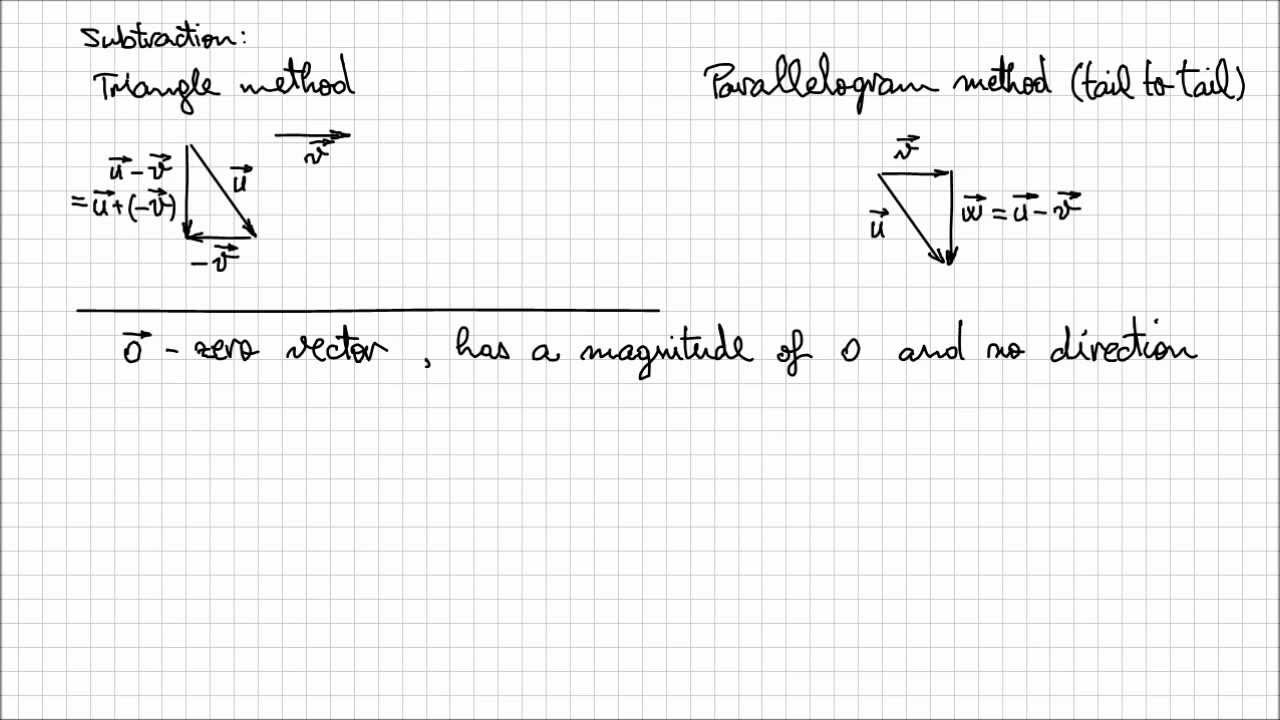 Subtraction:
Triangle method
Parallelogram method (tail to tail)
v⃗
u⃗ - v⃗
= u⃗ + (-v⃗)
u⃗
-v⃗
v⃗
u⃗
w⃗ = u⃗ - v⃗
0⃗ - zero vector, has a magnitude of 0 and no direction